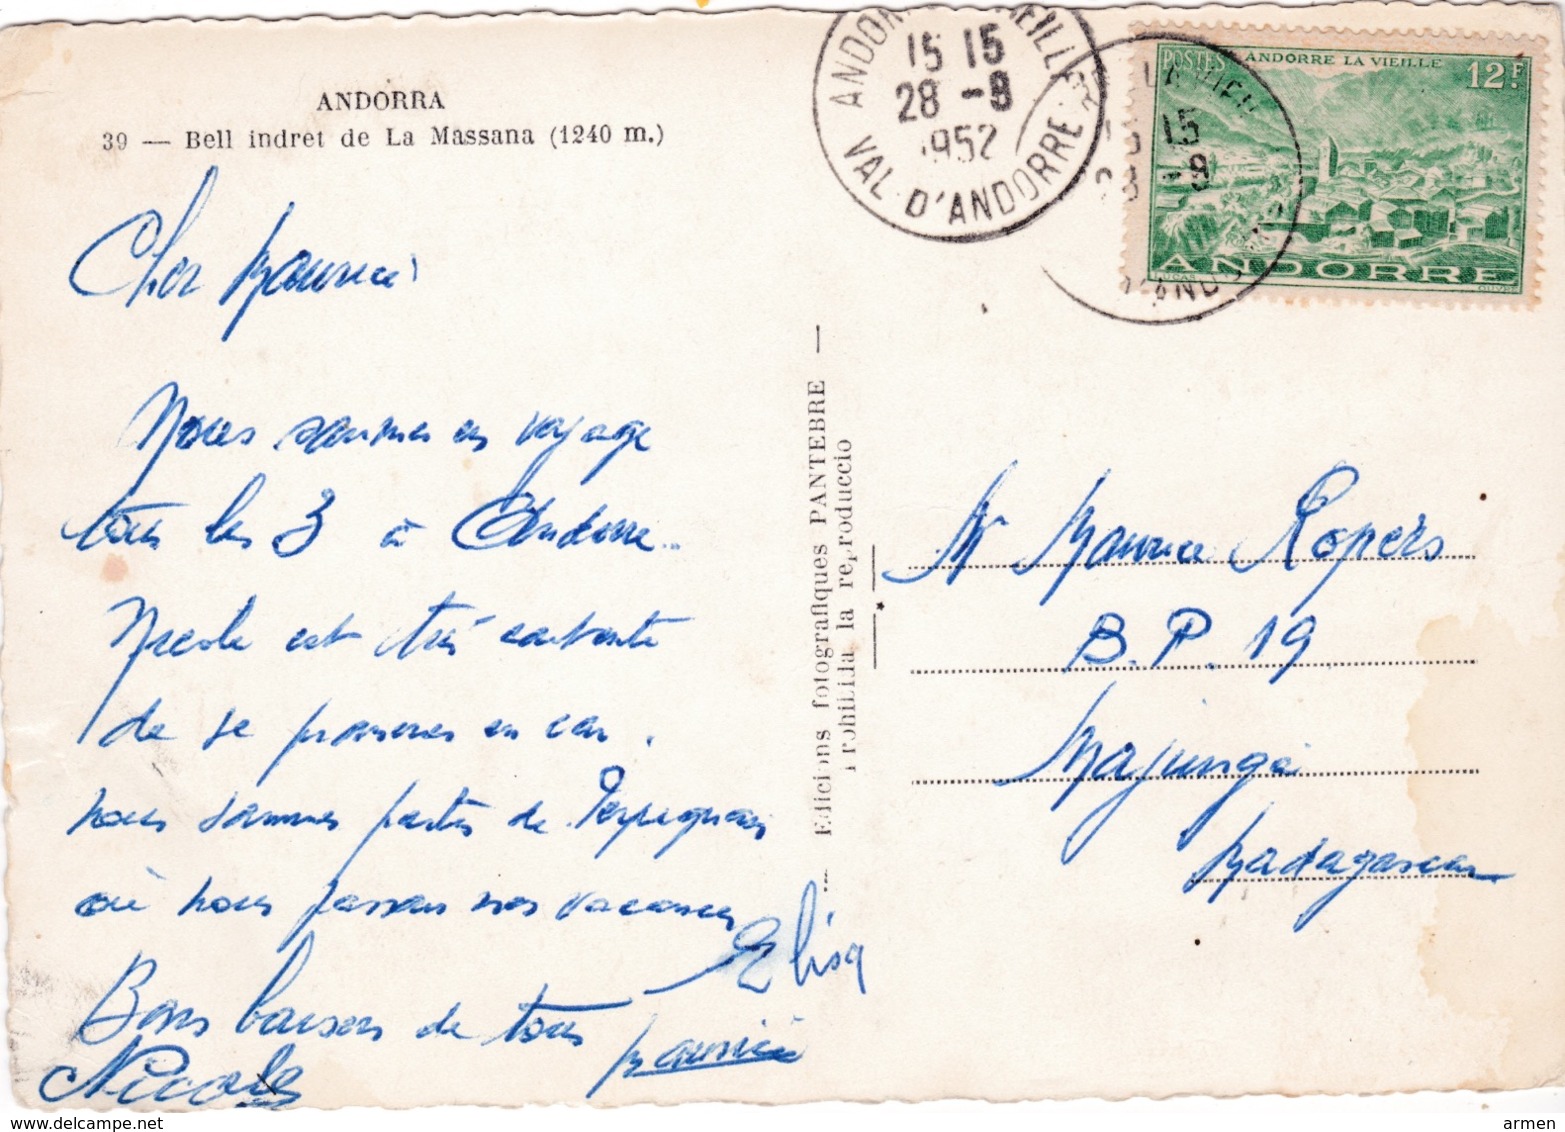 ANDORRA
39 — Bell indret de La Massana (1240 m.)
Cher Maurice
Nous sommes en voyage
tous les 3 à Andorre..
Nicole est très contente
de se promener en car.
nous sommes partis de Perpignan
où nous passons nos vacances
Bons baisers de tous
Elisa
Maurice
Nicole
— Edicions fotografiques PANTEBRE —
Prohibida la reproduccio
ANDORRE VIEILLE
15 15
28 -8
1952
VAL D'ANDORRE
15
28 -8
POSTES ANDORRE LA VIEILLE 12F
ANDORRE
M Maurice Ropers
B.P. 19
Majunga
Madagascar
armen